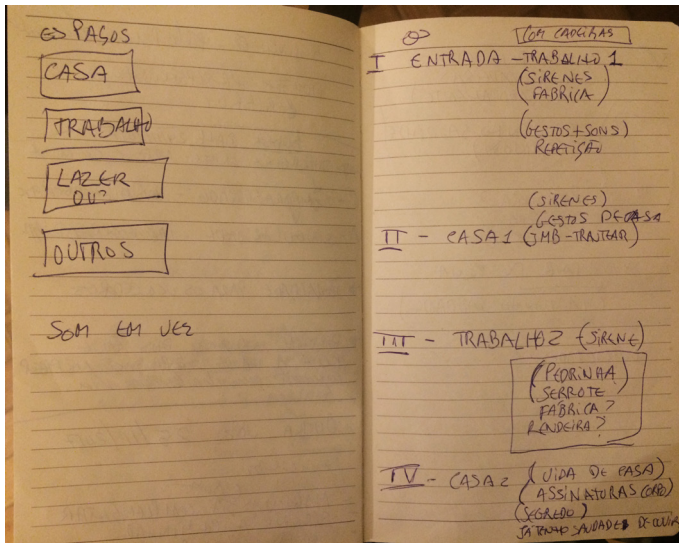 PAÇOS
CASA
TRABALHO
LAZER
OU?
OUTROS
SOM EM VEZ
COM CADEIRAS
I ENTRADA - TRABALHO 1
(SIRENES
FABRICA)
(GESTOS + SONS)
REPETIÇÃO
(SIRENES)
GESTOS DE CASA
II - CASA 1 (JMB - TRAUTEAR)
III - TRABALHO 2 (SIRENE)
(PEDRINHA)
SERROTE
FÁBRICA?
RENDEIRA?
IV - CASA 2 (VIDA DE CASA)
ASSINATURAS (CORPO)
(SEGREDO)
JÁ TENHO SAUDADES DE OUVIR